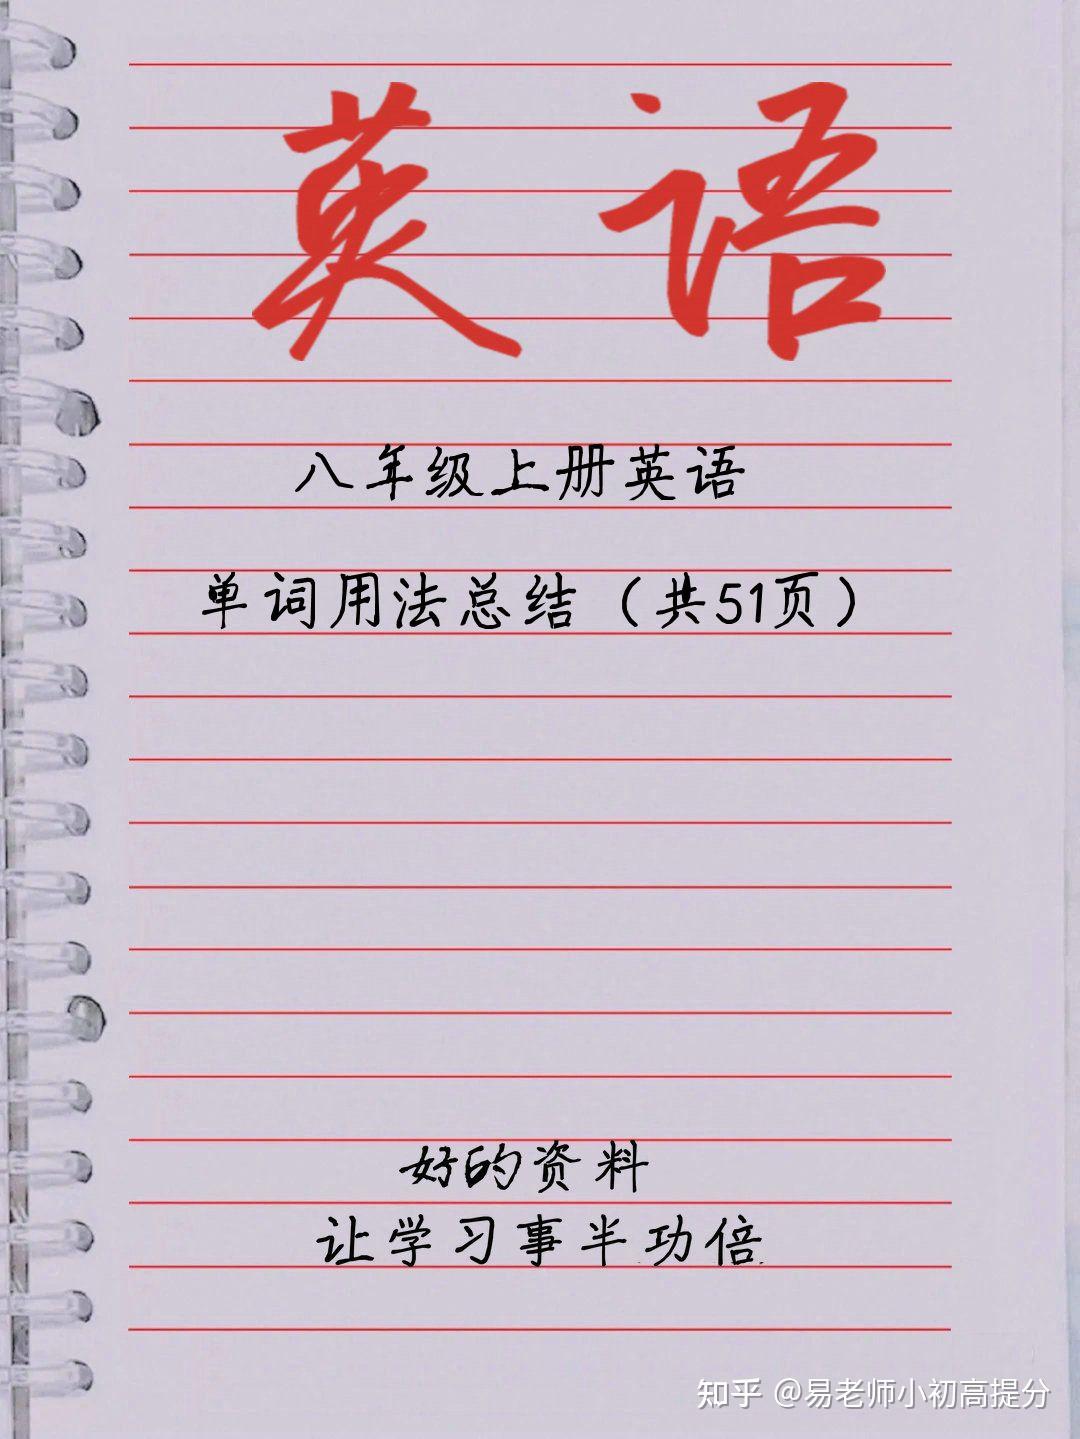 英语
八年级上册英语
单词用法总结（共51页）
好的资料
让学习事半功倍
知乎 @易老师小初高提分